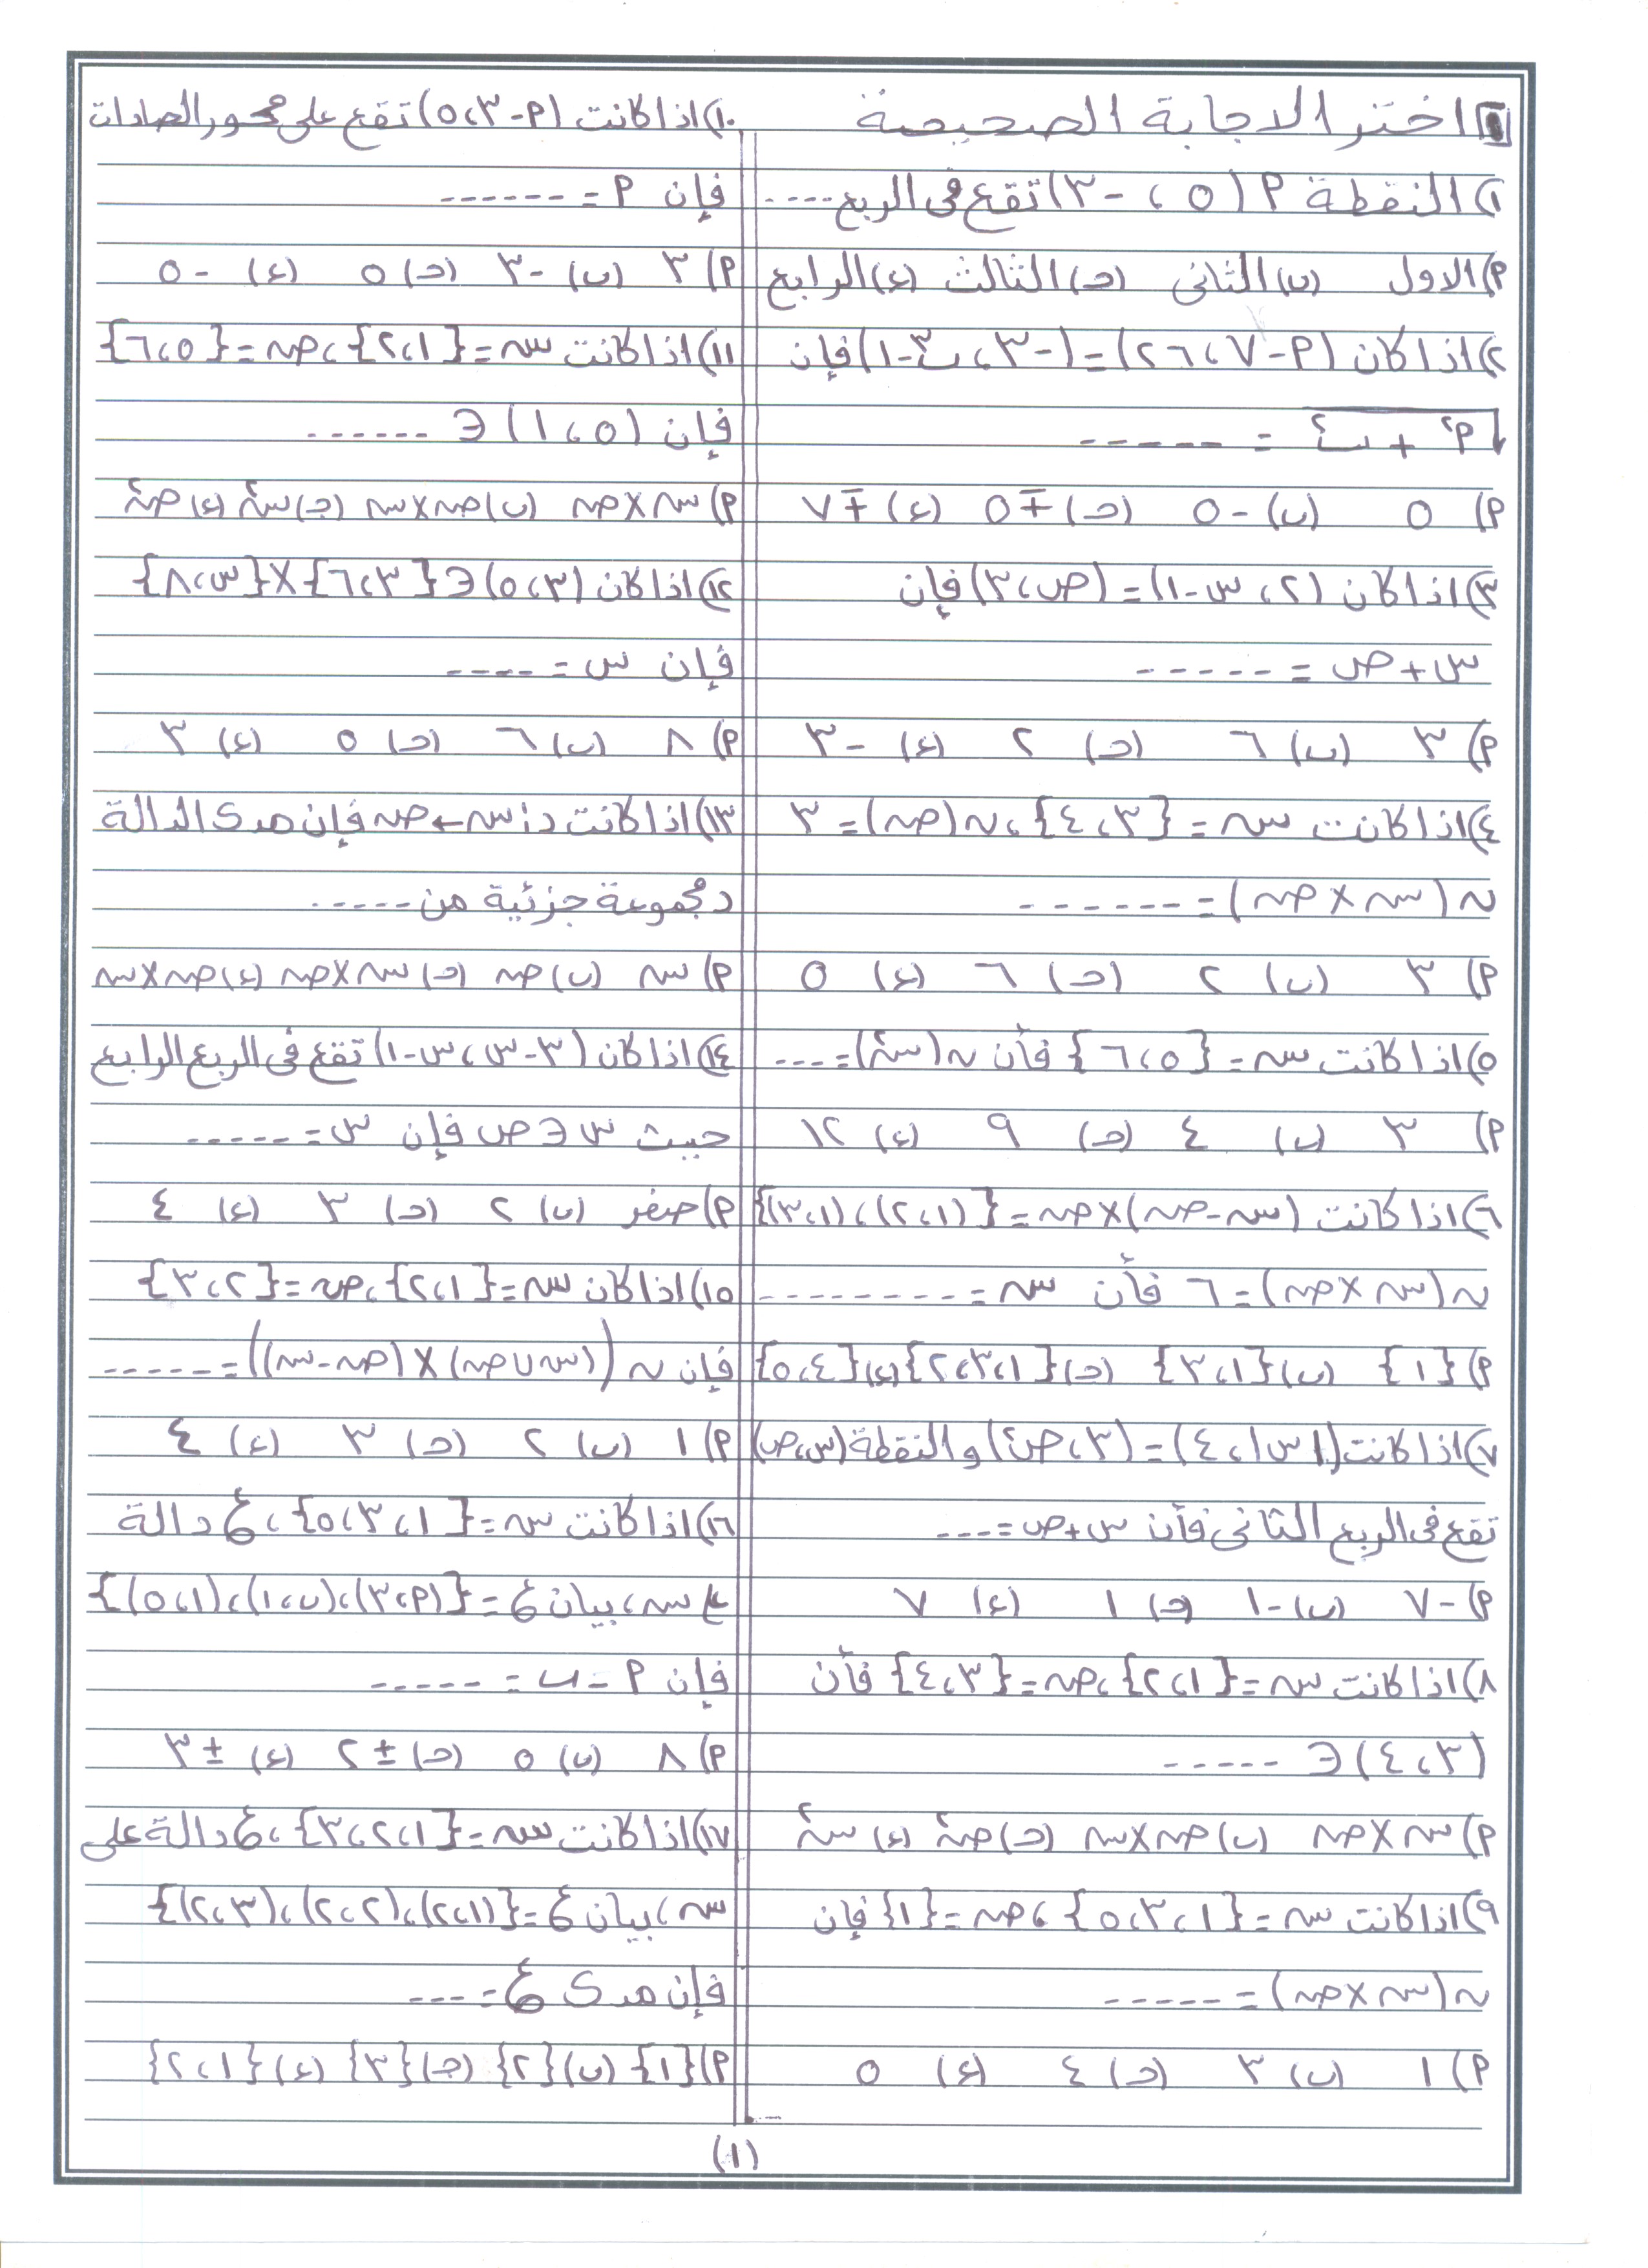 اختر الاجابة الصحيحة
١) النقطة P (٥ ، -٣) تقع فى الربع ....
P) الاول (ب) الثانى (ح) الثالث (ء) الرابع
٢) اذا كان (P - ٧ ، ٢٦) = (-٣ ، ب٣ - ١) فإن
√P٢ + ب٢ = -----
P) ٥ (ب) -٥ (ح) ∓٥ (ء) ∓٧
٣) اذا كان (٢ ، س - ١) = (ص ، ٣) فإن
س + ص = -----
P) ٣ (ب) ٦ (ح) ٢ (ء) -٣
٤) اذا كانت س = {٣ ، ٤} ، ن(ص) = ٣
ن(س × ص) = ------
P) ٣ (ب) ٢ (ح) ٦ (ء) ٥
٥) اذا كانت س = {٥ ، ٦} فأن ن(س٢) = ----
P) ٣ (ب) ٤ (ح) ٩ (ء) ١٢
٦) اذا كانت (س - ص) × ص = {(١ ، ٢) ، (١ ، ٣)}
ن(س × ص) = ٦ فأن س = ---------
P) {١} (ب) {١ ، ٣} (ح) {١ ، ٣ ، ٢} (ء) {٤ ، ٥}
٧) اذا كانت (|س| ، ٤) = (٣ ، ص٢) والنقطة (س ، ص)
تقع فى الربع الثانى فأن س + ص = ----
P) -٧ (ب) -١ (ح) ١ (ء) ٧
٨) اذا كانت س = {١ ، ٢} ، ص = {٣ ، ٤} فأن
(٣ ، ٤) ∈ -----
P) س × ص (ب) ص × س (ح) ص٢ (ء) س٢
٩) اذا كانت س = {١ ، ٣ ، ٥} ، ص = {١} فإن
ن(س × ص) = -----
P) ١ (ب) ٣ (ح) ٤ (ء) ٥
١٠) اذا كانت (P - ٣ ، ٥) تقع على محور الصادات
فإن P = ------
P) ٣ (ب) -٣ (ح) ٥ (ء) -٥
١١) اذا كانت س = {١ ، ٢} ، ص = {٥ ، ٦}
فإن (٥ ، ١) ∈ ------
P) س × ص (ب) ص × س (ج) س٢ (ء) ص٢
١٢) اذا كان (٣ ، ٥) ∈ {٣ ، ٦} × {س ، ٨}
فإن س = ----
P) ٨ (ب) ٦ (ح) ٥ (ء) ٣
١٣) اذا كانت د : س ← ص فإن مدى الدالة
د مجموعة جزئية من -----
P) س (ب) ص (ح) س × ص (ء) ص × س
١٤) اذا كان (٣ - س ، س - ١) تقع فى الربع الرابع
حيث س ∈ ص فإن س = -----
P) صفر (ب) ٢ (ح) ٣ (ء) ٤
١٥) اذا كان س = {١ ، ٢} ، ص = {٢ ، ٣}
فإن ن((س ∪ ص) × (ص - س)) = ------
P) ١ (ب) ٢ (ح) ٣ (ء) ٤
١٦) اذا كانت س = {١ ، ٣ ، ٥} ، ع دالة
على س ، بيان ع = {(P ، ٣) ، (ب ، ١) ، (١ ، ٥)}
فإن P - ب = -----
P) ٨ (ب) ٥ (ح) ±٢ (ء) ±٣
١٧) اذا كانت س = {١ ، ٢ ، ٣} ، ع دالة على
س ، بيان ع = {(١ ، ٢) ، (٢ ، ٢) ، (٣ ، ٢)}
فإن مدى ع = ----
P) {١} (ب) {٢} (ج) {٣} (ء) {١ ، ٢}
(١)